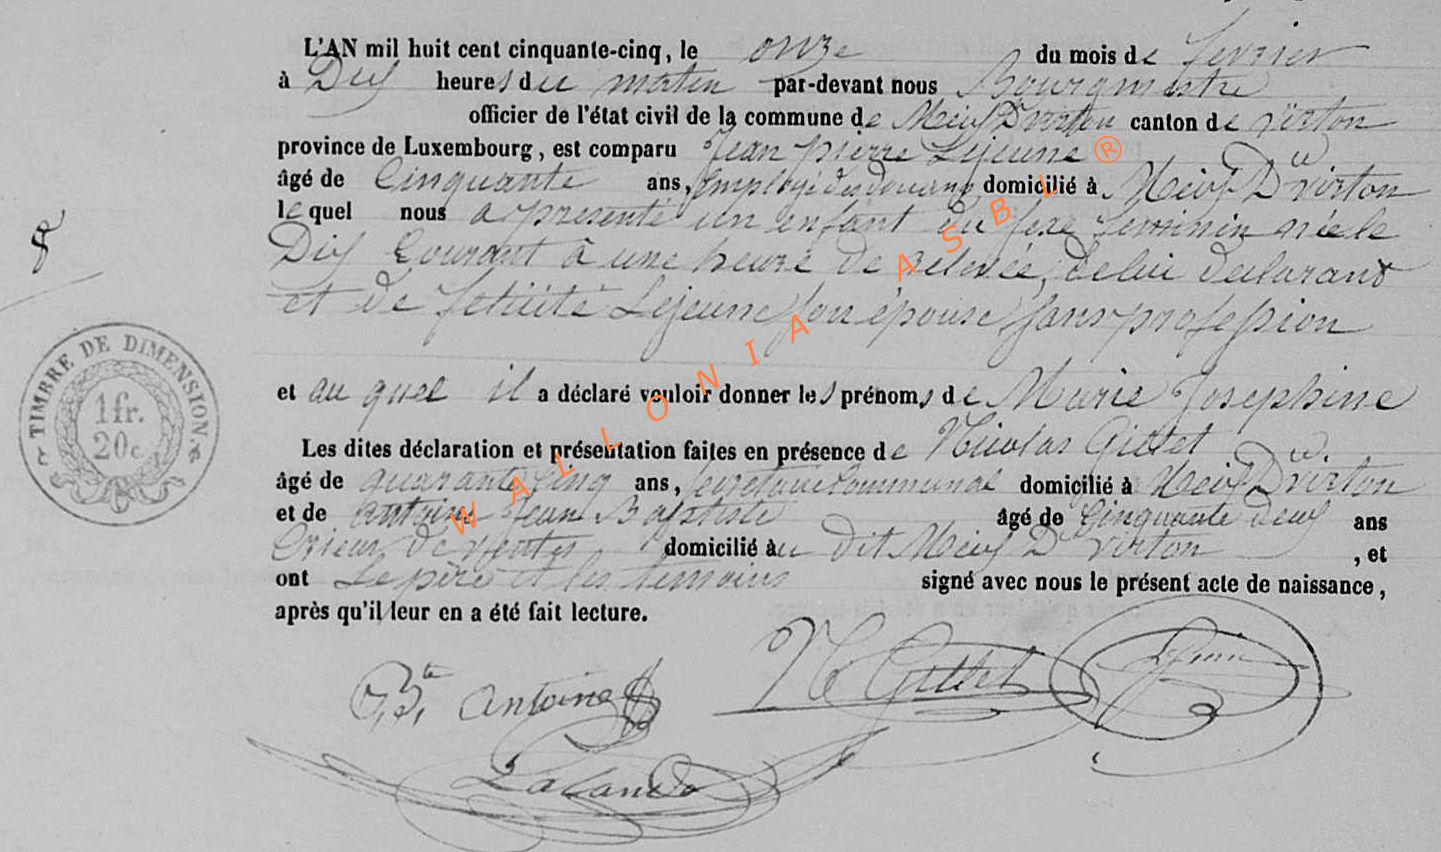 L'AN mil huit cent cinquante-cinq, le onze du mois de fevrier
à Dix heures du matin par-devant nous Bourgmestre
officier de l'état civil de la commune de Meix Dt virton canton de virton
province de Luxembourg, est comparu Jean pierre Lejeune ®
âgé de Cinquante ans, Employé des douanes domicilié à Meix Dt virton
le quel nous a présenté un enfant du sexe feminin née le
8
Dix Courant à une heure de relevée, de lui declarant
et de felicité Lejeune son épouse, sans profession
et au quel il a déclaré vouloir donner les prénoms de Marie Josephine
TIMBRE DE DIMENSION.
1 fr.
20 c.
Les dites déclaration et présentation faites en présence de Nicolas Gillet
âgé de quarante Cinq ans, secretaire Communal domicilié à Meix Dt virton
et de antoine Jean Baptiste âgé de Cinquante deux ans
Crieur de ventes domicilié au dit Meix Dt virton, et
ont Le père et les temoins signé avec nous le présent acte de naissance,
après qu'il leur en a été fait lecture.
J, Bte antoine
N Gillet
Lejeune
WALLONIA ASBL